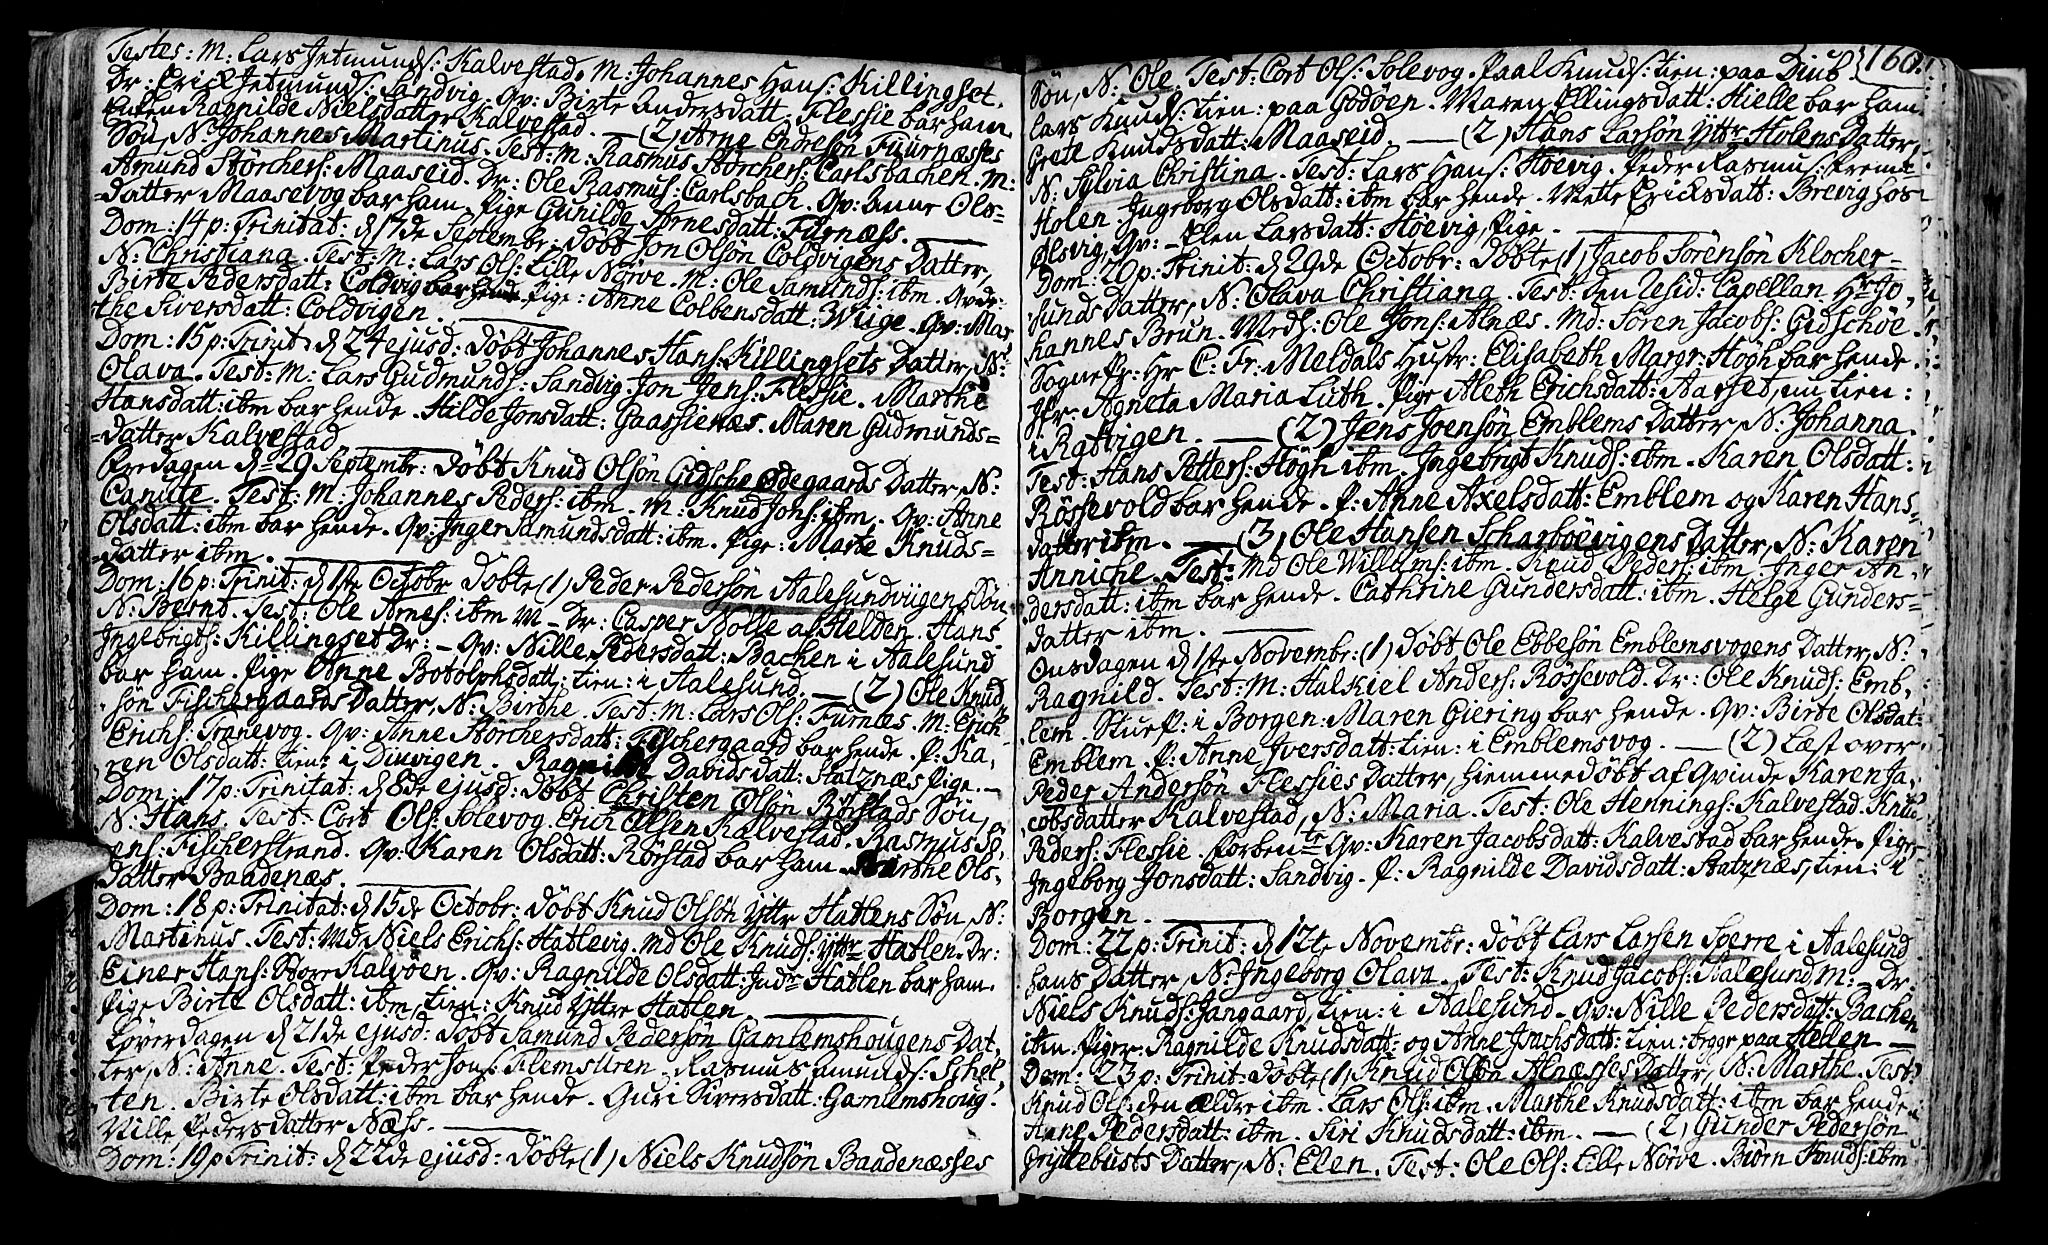 Testes: M: Lars Jetmunds: Kalvestad. M: Johannes Hans: Killingset.
Dr: Erick Jetmunds: Sandvig. Qv: Birte Andersdatt: Flessie bar ham.
Ragnilde Nielsdatter Kalvestad. — (2) Arne Endresön Fuurnæsses
Sön, N: Johannes Martinus. Test: M: Rasmus Störchers: Carlsbachen. M:
Amund Störchers: Maaseid. Dr: Ole Rasmus: Carlsbach. Qv: Anne Ols=
=datter Maasevog bar ham. Pige Gunilde Arnesdatt: Furnæss.
Dom: 14 p: Trinitat: d: 17de Septembr: döbt Jon Olsön Coldvigens Datter,
N: Christiana. Test: M: Lars Ols: Lille Nörve. M: Ole Samunds: ibm. Qv:
Birte Pedersdatt: Coldvig bar hende Pige: Anne Colbensdatt: Wiige. Qv: Mar,
the Siversdatt: Coldvigen.
Dom: 15 p: Trinit: d: 24 ejusd: döbt Johannes Hans: Killingsets Datter, N:
Olava. Test: M: Lars Gudmunds: Sandvig. Jon Jens: Flessie. Marthe
Hansdatt: ibm bar hende. Hilde Jonsdatt: Gaassienæs. Maren Gudmunds=
=datter Kalvestad
Fredagen d: 29 Septembr: döbt Knud Olsön Gidsche Ödegaards Datter, N:
Canute. Test: M: Johannes Peders: ibm. M: Knud Jons: ibm. Qv: Anne
Olsdatt: ibm bar hende. Qv: Inger Samundsdatt: ibm. Pige: Marte Knuds=
=datter ibm.
Dom: 16 p: Trinit: d: 1ste Octobr döbte (1) Peder Pedersön Aalesundviigens Sön,
N: Bernt. Test: Ole Arnes: ibm M — Dr: Casper Nolle af Helden. Hans
Ingebrigts: Killingset Dr: — Qv: Nille Pedersdatt: Bachen i Aalesund
bar ham. Pige Anne Botolphsdatt: tien: i Aalesund. — (2) Ole Knud,
sön Fischergaards Datter, N: Birthe. Test: M: Lars Ols: Furnæs. M: Erick
Erichs: Tranevog. Qv: Anne Störchersdatt: Fischergaard bar hende. P: Ka,
ren Olsdatt: tien: i Diuvigen. Ragnild Davidsdatt: Statznæs Pige. —
Dom: 17 p: Trinitat: d: 8de ejusd: döbt Christen Olsön Rörstads Sön,
N: Hans. Test: Cort Ols: Solevog. Erich Olsen Kalvestad. Rasmus Sö,
rens: Fischerstrand. Qv: Karen Olsdatt: Rörstad bar ham. Birthe Ols,
datter Baadenæs.
Dom: 18 p: Trinitat: d: 15de Octobr: döbt Knud Olsön Yttr Hatlens Sön, N:
Martinus. Test: Md Niels Erichs: Hatlevig. Md Ole Knuds: Yttr Hatlen. Dr:
Einer Hans: Store Kalvöen. Qv: Ragnilde Olsdatt: Indr Hatlen bar ham.
Pige Birte Olsdatt: ibm, tien: Knud Yttre Hatlen.
Löverdagen d: 21de ejusd: döbt Samund Pedersön Gamlemshougens Dat,
ter, N: Anne. Test: Peder Jons: Flemsuren. Rasmus Amunds: Schel,
ten. Birte Olsdatt: ibm bar hende. Guri Siversdatt: Gamlemshoug.
Ville Pedersdatter Næss.
Dom: 19 p Trinit: d: 22de ejusd: döbte (1) Niels Knudsön Baadenæsses
160.
Sön, N: Ole. Test: Cort Ols: Solevog. Paal Knuds: tien: paa Diub
Lars Knuds: tien: paa Godöen. Maren Ellingsdatt: Hielle bar ham.
Grete Knudsdatt: Maaseid. — (2) Hans Larsön Yttr Holens Datter,
N: Sylvia Christina. Test: Lars Hans: Höevig. Peder Rasmus:
Holen. Ingeborg Olsdatt: ibm bar hende. Mette Ericksdatt: Brevig hos
Ölsvig, Qv: — Elen Larsdatt: Höevig, Pige.
Dom: 20 p: Trinit: d: 29de Octobr: döbte (1) Jacob Sörensön Klocher=
sunds Datter, N: Olava Christiana. Test: den Resid: Capellan Hr Jo,
hannes Brun. Meds: Ole Jons: Alnæs. Md: Sören Jacobs: Gidschöe.
Sognepr: Hr C: Fr: Meldals Hustr: Elisabeth Margr: Högh bar hende.
Jfr: Agneta Maria Luth. Pige Aleth Erichsdatt: Aarset, nu tien:
i Ratvigen. — (2) Jens Joensön Emblems Datter N: Johanna.
Test: Hans Petters: Högh ibm. Ingebrigt Knuds: ibm. Karen Olsdatt:
Rössevold bar hende. P: Anne Axelsdatt: Emblem og Karen Hans=
datter ibm. — (3) Ole Hansen Scharböevigens Datter, N: Karen
Anniche. Test: Md Ole Willums: ibm. Knud Peders: ibm. Inger An=
dersdatt: ibm bar hende. Cathrine Gundersdatt: ibm. Helge Gunders=
datter ibm.
Onsdagen d: 1ste Novembr: (1) döbt Ole Ebbesön Emblemsvogens Datter, N:
Ragnild. Test: M: Halkiel Anders: Rössevold. Dr: Ole Knuds: Emb,
lem. Stuep: i Borgen: Maren Giering bar hende. Qv: Birte Olsdat:
Emblem. P: Anne Iversdatt: tien: i Emblemsvog. — (2) Læst over
Peder Andersön Flessies Datter, hiemmedöbt af Qvinde Karen Ja,
cobsdatter Kalvestad, N: Maria. Test: Ole Hennings: Kalvestad. Knud
Peders: Flessie. Forbente Qv: Karen Jacobsdatt: Kalvestad bar hende. Piger
Ingeborg Jonsdatt: Sandvig. P: Ragnilde Davidsdatt: Statznæs, tien: i
Borgen.
Dom: 22 p: Trinit: d: 12te Novembr: döbt Lars Larsen Sperre i Aalesund
hans Datter, N: Ingeborg Olava. Test: Knud Jacobs: Aalesund M: — Dr:
Niels Knuds: Jangaard, tien: i Aalesund. Qv: Nille Pedersdatt: Bachen
ibm. Piger: Ragnilde Knudsdatt: og Anne Isachsdatt: tien: begge paa Helden —
Dom: 23 p: Trinit: döbte (1) Knud Olsön Alnæsses Datter, N: Marthe. Test:
Knud Ols: den ældre ibm. Lars Ols: ibm. Marthe Knudsdatt: ibm bar hende.
Pedersdatt: ibm. Siri Knudsdatt: ibm. — (2) Gunder Pedersön
Gryttebusts Datter, N: Elen. Test: Ole Ols: Lille Nörve. Biörn Knuds: ibm